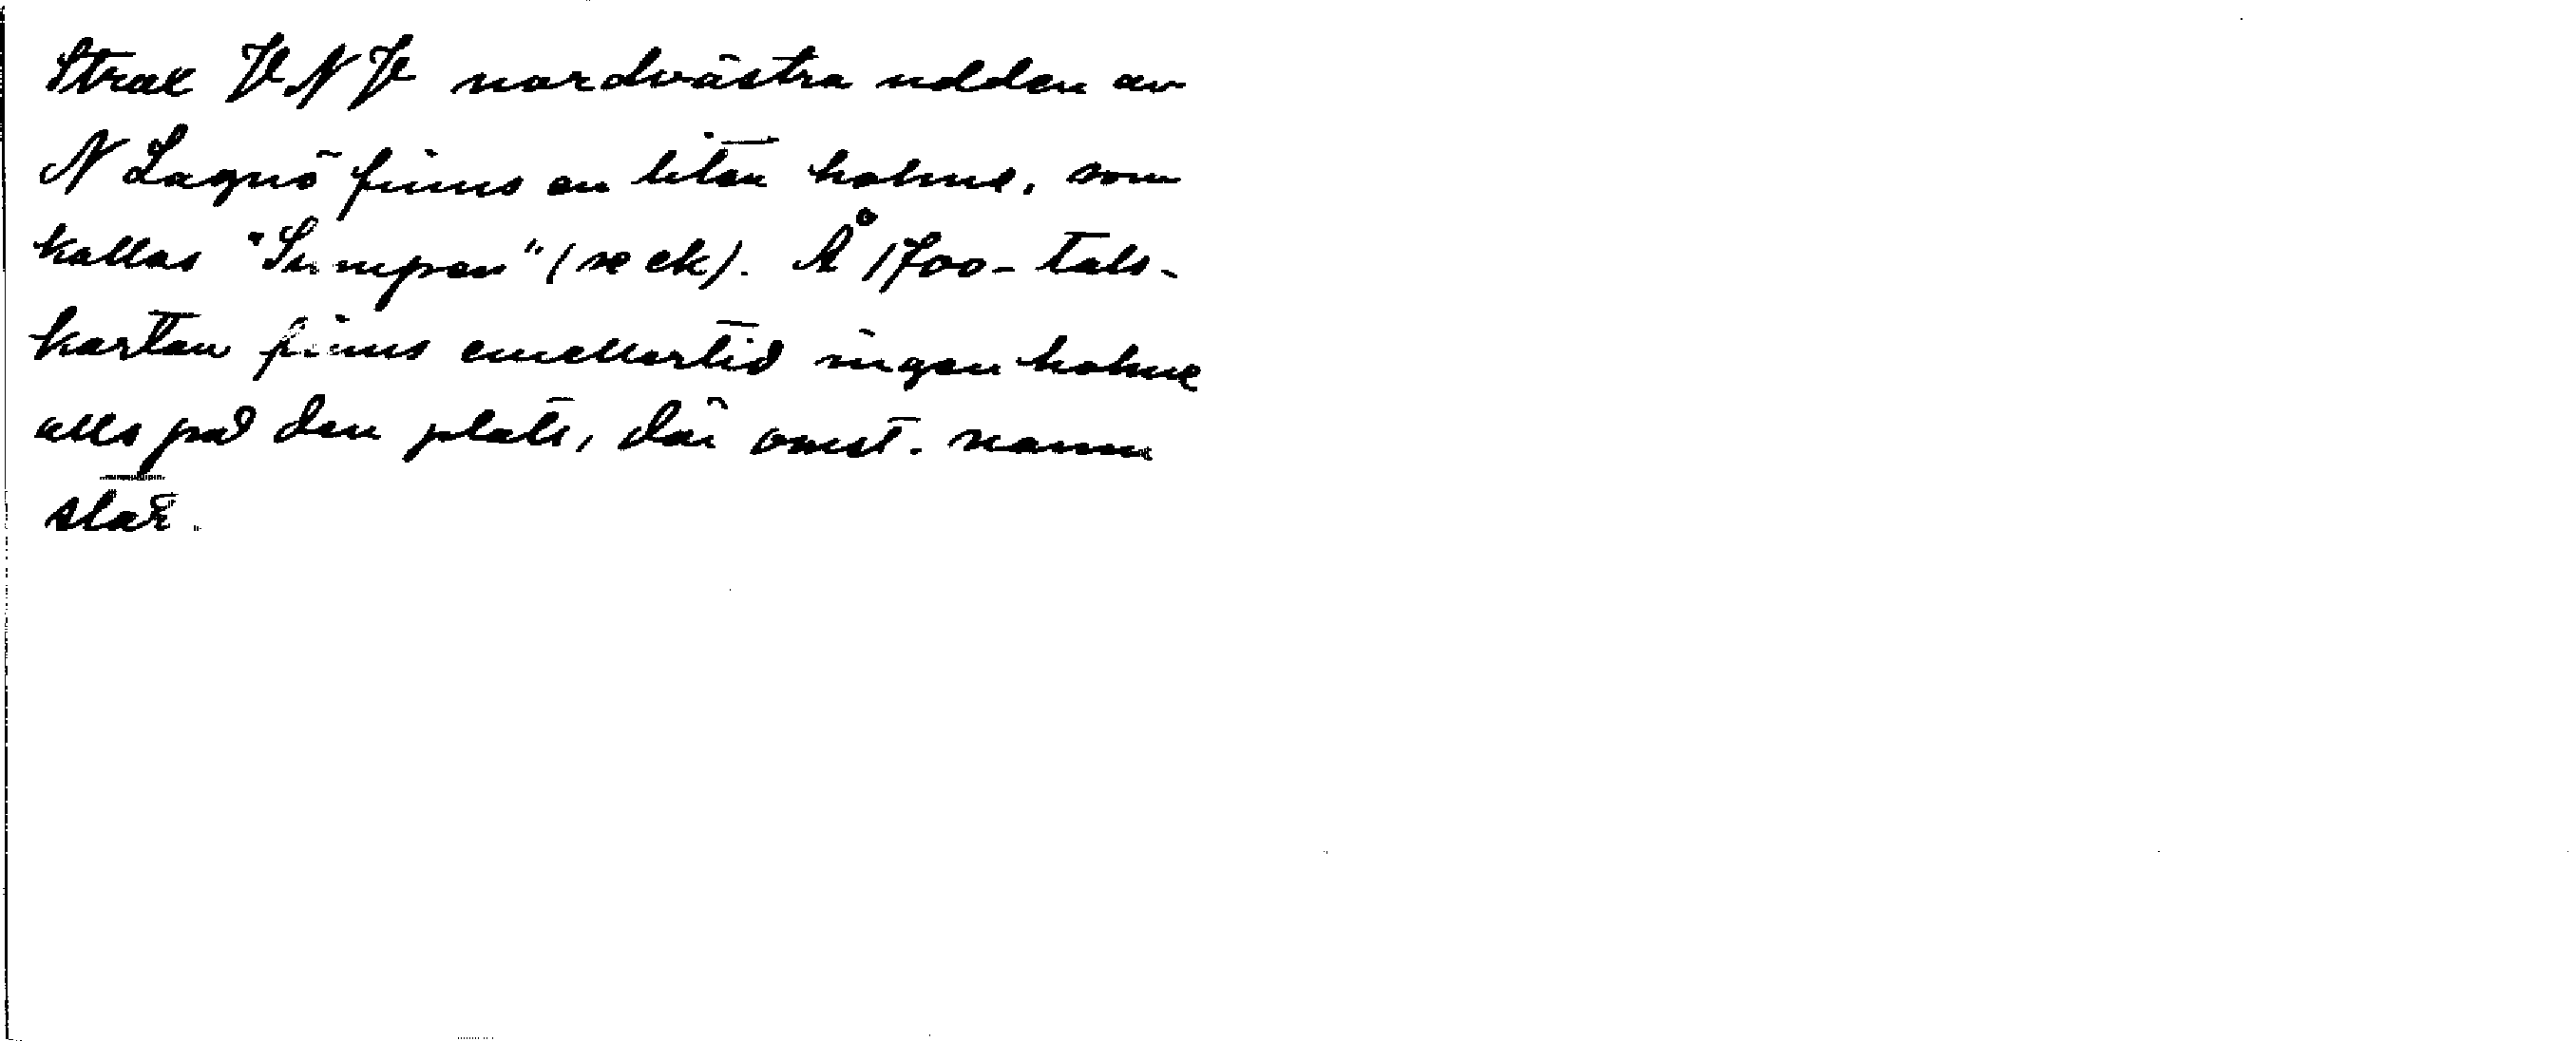 Strax VNV nordvästra udden av
N Lagnö finns en liten holme, som
kallas "Sumpen" (se ek). Å 1700-tals-
kartan finns emellertid ingen holme
alls på den plats, där ovanst. namn
står.